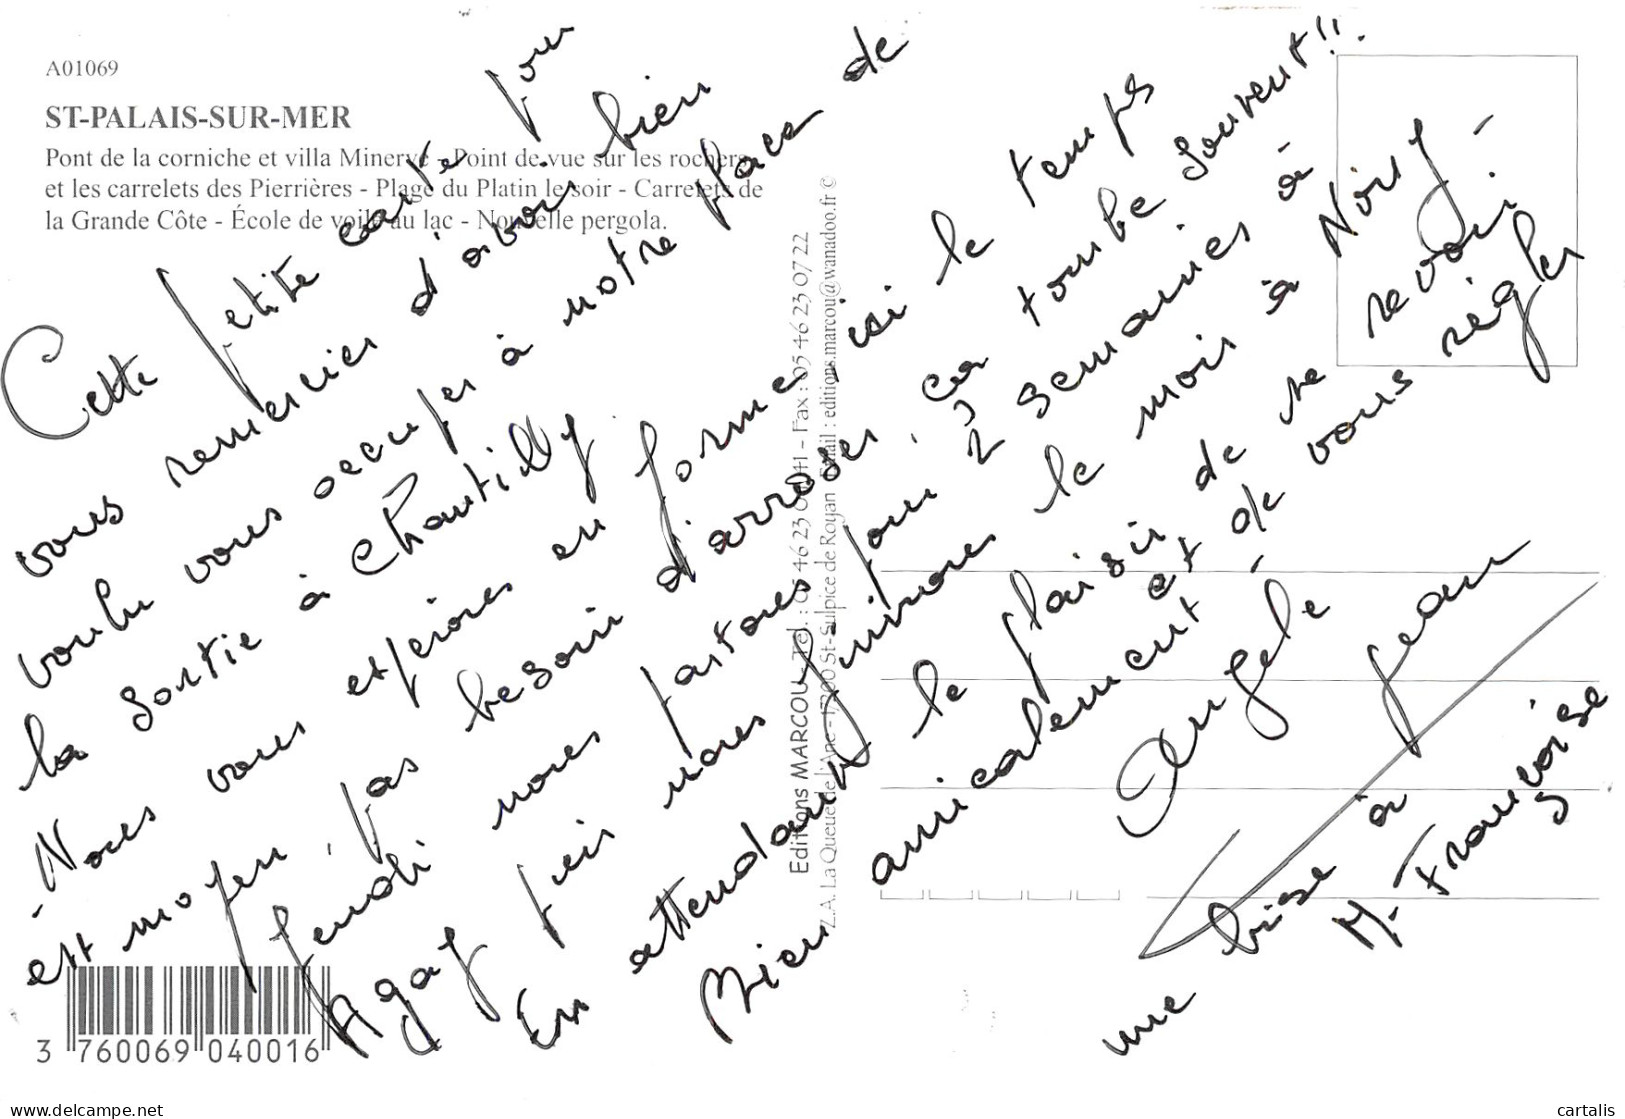 A01069
ST-PALAIS-SUR-MER
Pont de la corniche et villa Minerve - Point de vue sur les rochers
et les carrelets des Pierrières - Plage du Platin le soir - Carrelets de
la Grande Côte - École de voile au lac - Nouvelle pergola.
Cette petite carte pour
vous remercier d'avoir bien
voulu vous occuper à notre place de
la sortie à Chantilly
- Nous vous espérons en forme, ici le temps
est moyen, pas besoin d'arroser, ça tombe souvent!!
Jeudi nous partons pour 2 semaines à
Agay puis nous finirons le mois à Noisy -
En attendant le plaisir de se revoir
Bien amicalement et de vous régler
Angèle Jean
une bise à
M-Françoise
Editions MARCOU - Tél. : 05 46 23 - Fax : 05 46 23 07 22
Z.A. La Queue de l'Ane - 17200 St-Sulpice de Royan Email : editions.marcou@wanadoo.fr ©
3 760069 040016
delcampe.net
cartalis